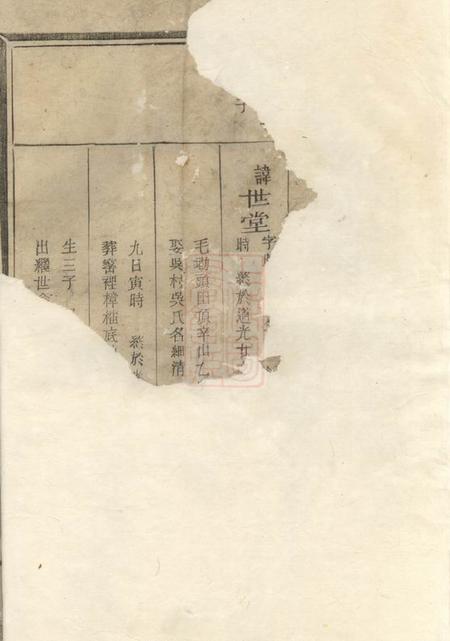 子
諱世堂字
時 終於道光廿
毛坳頭田頂辛山乙
娶吳村吳氏名細清
九日寅時 終於
葬窰裡樟樹底
生三子
出繼世